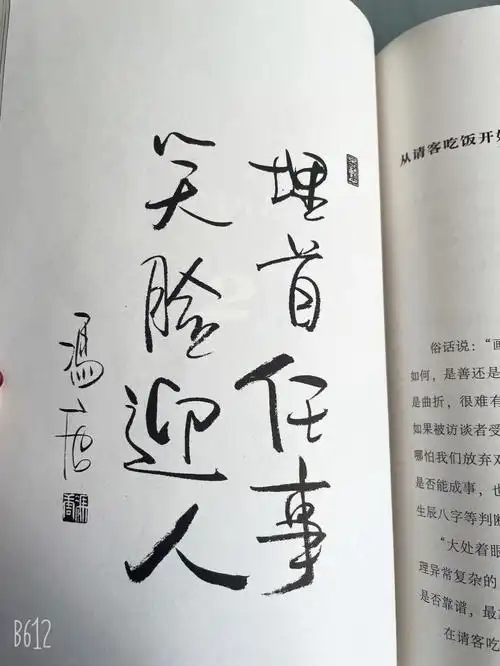 埋首任事
笑脸迎人
冯唐
从请客吃饭开
俗话说：“画
如何，是善还是
是曲折，很难有
如果被访谈者受
哪怕我们放弃对
是否能成事，也
生辰八字等判断
“大处着眼
理异常复杂的
是否靠谱，最
在请客吃
B612